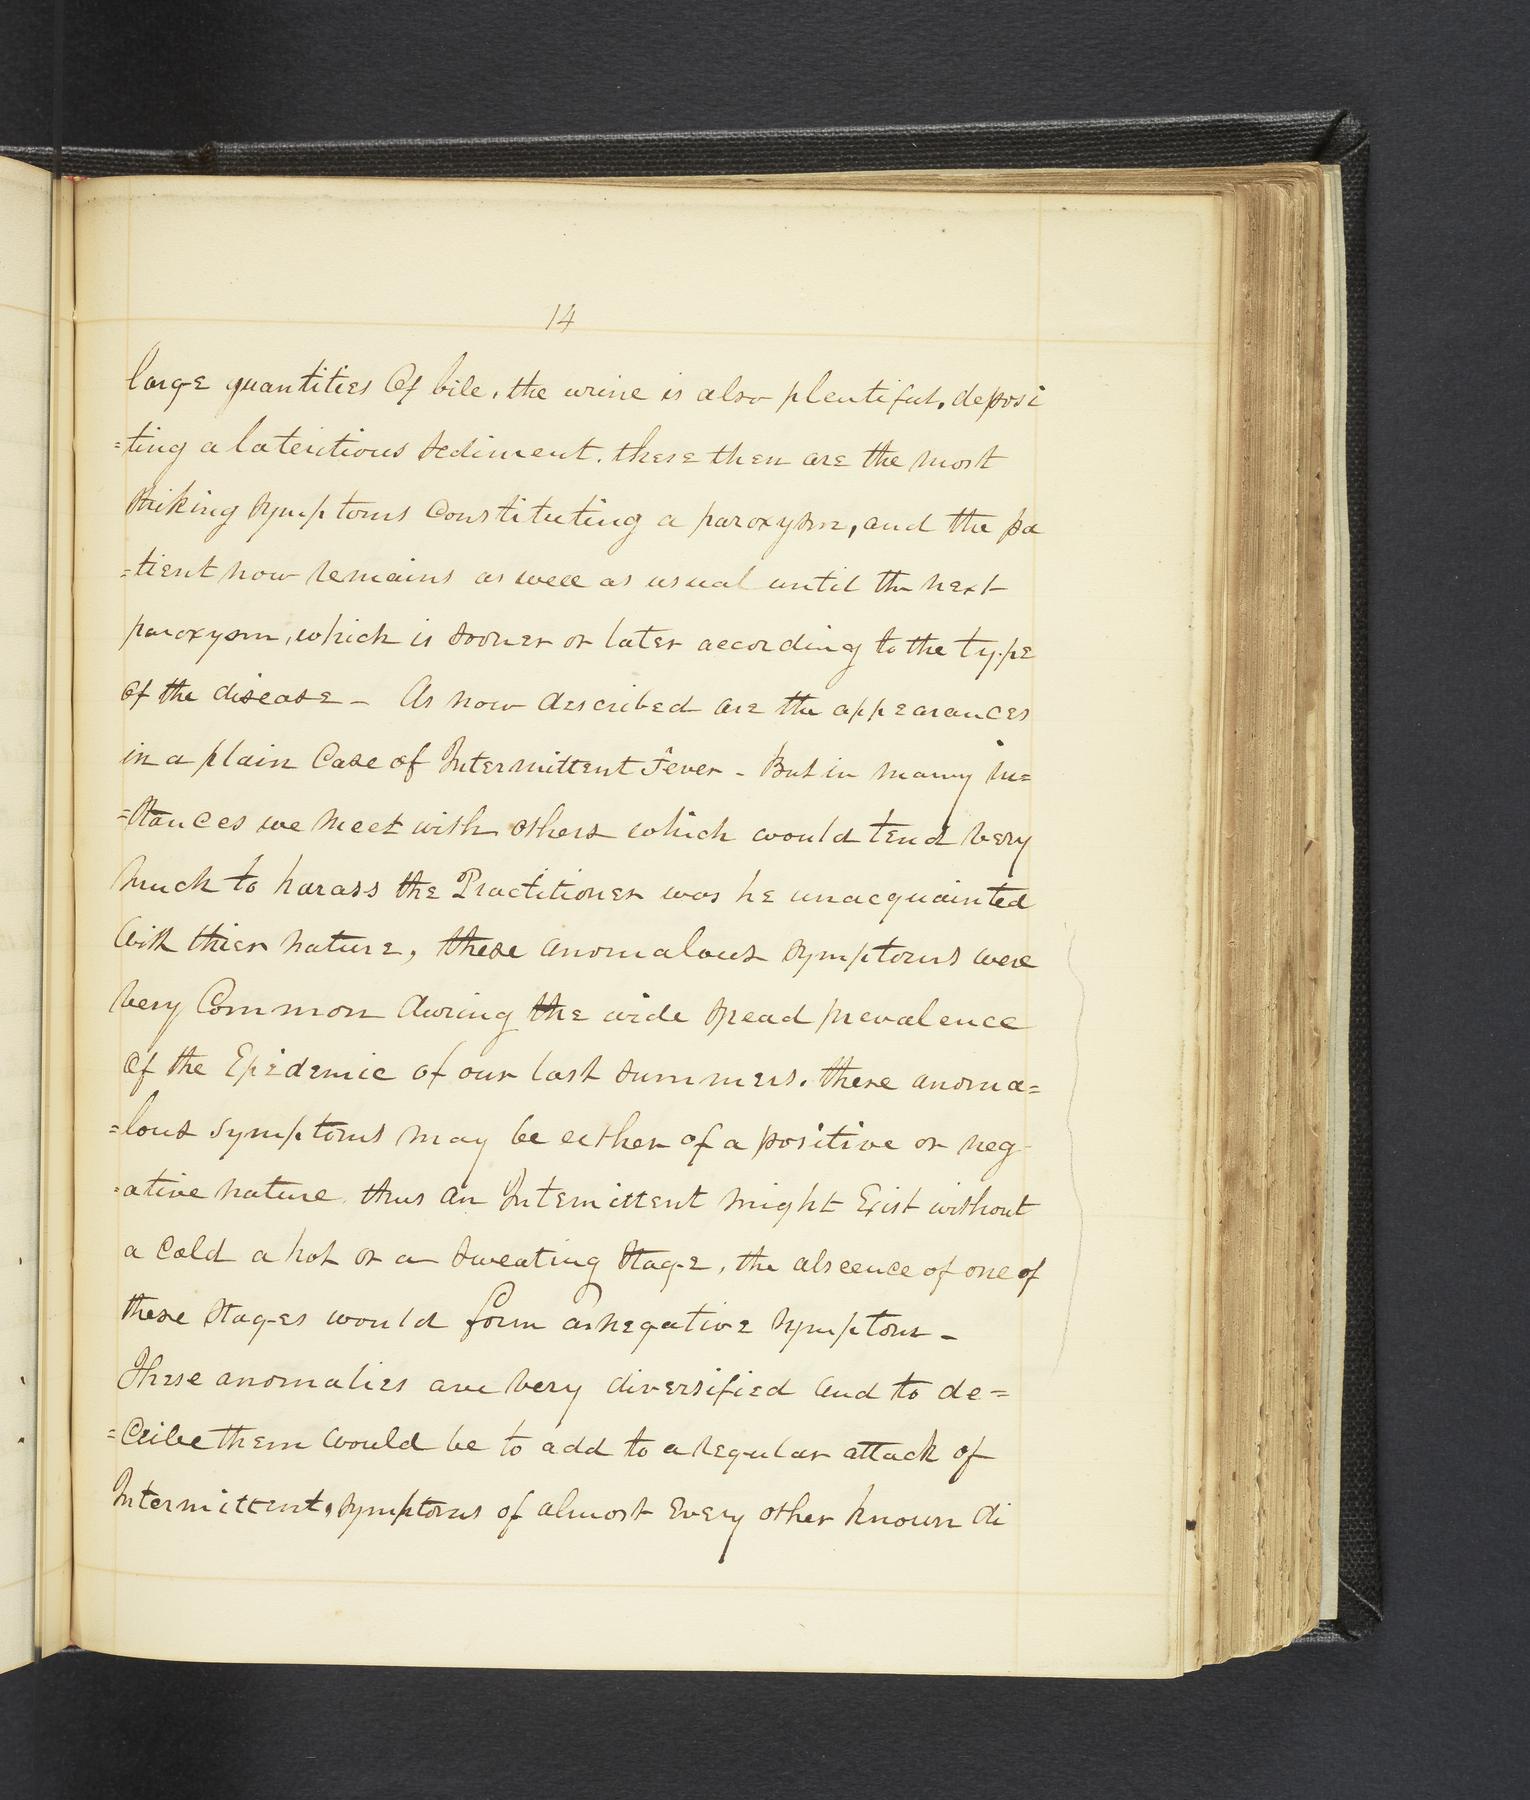 14
large quantities Of bile, the urine is also plentiful, deposi
=ting a lateritious sediment. these then are the most
striking symptoms Constituting a paroxysm, and the pa
=tient now remains as well as usual until the next
paroxysm, which is sooner or later according to the type
Of the disease - As now described are the appearances
in a plain Case of Intermittent Fever - But in many in=
=stances we meet with others which would tend very
much to harass the Practitioner was he unacquainted
With thier nature, these anomalous symptoms were
very Common during the wide spread prevalence
Of the Epidemic of our last summers. these anoma=
=lous symptoms may be either of a positive or neg-
=ative nature. thus an Intemittent might Exist without
a Cold a hot or a sweating Stage, the abscence of one of
these stages would form a negative symptom -
These anomalies are very diversified and to de=
=Cribe them would be to add to a regular attack of
Intermittent, symptoms of almost Every other known di